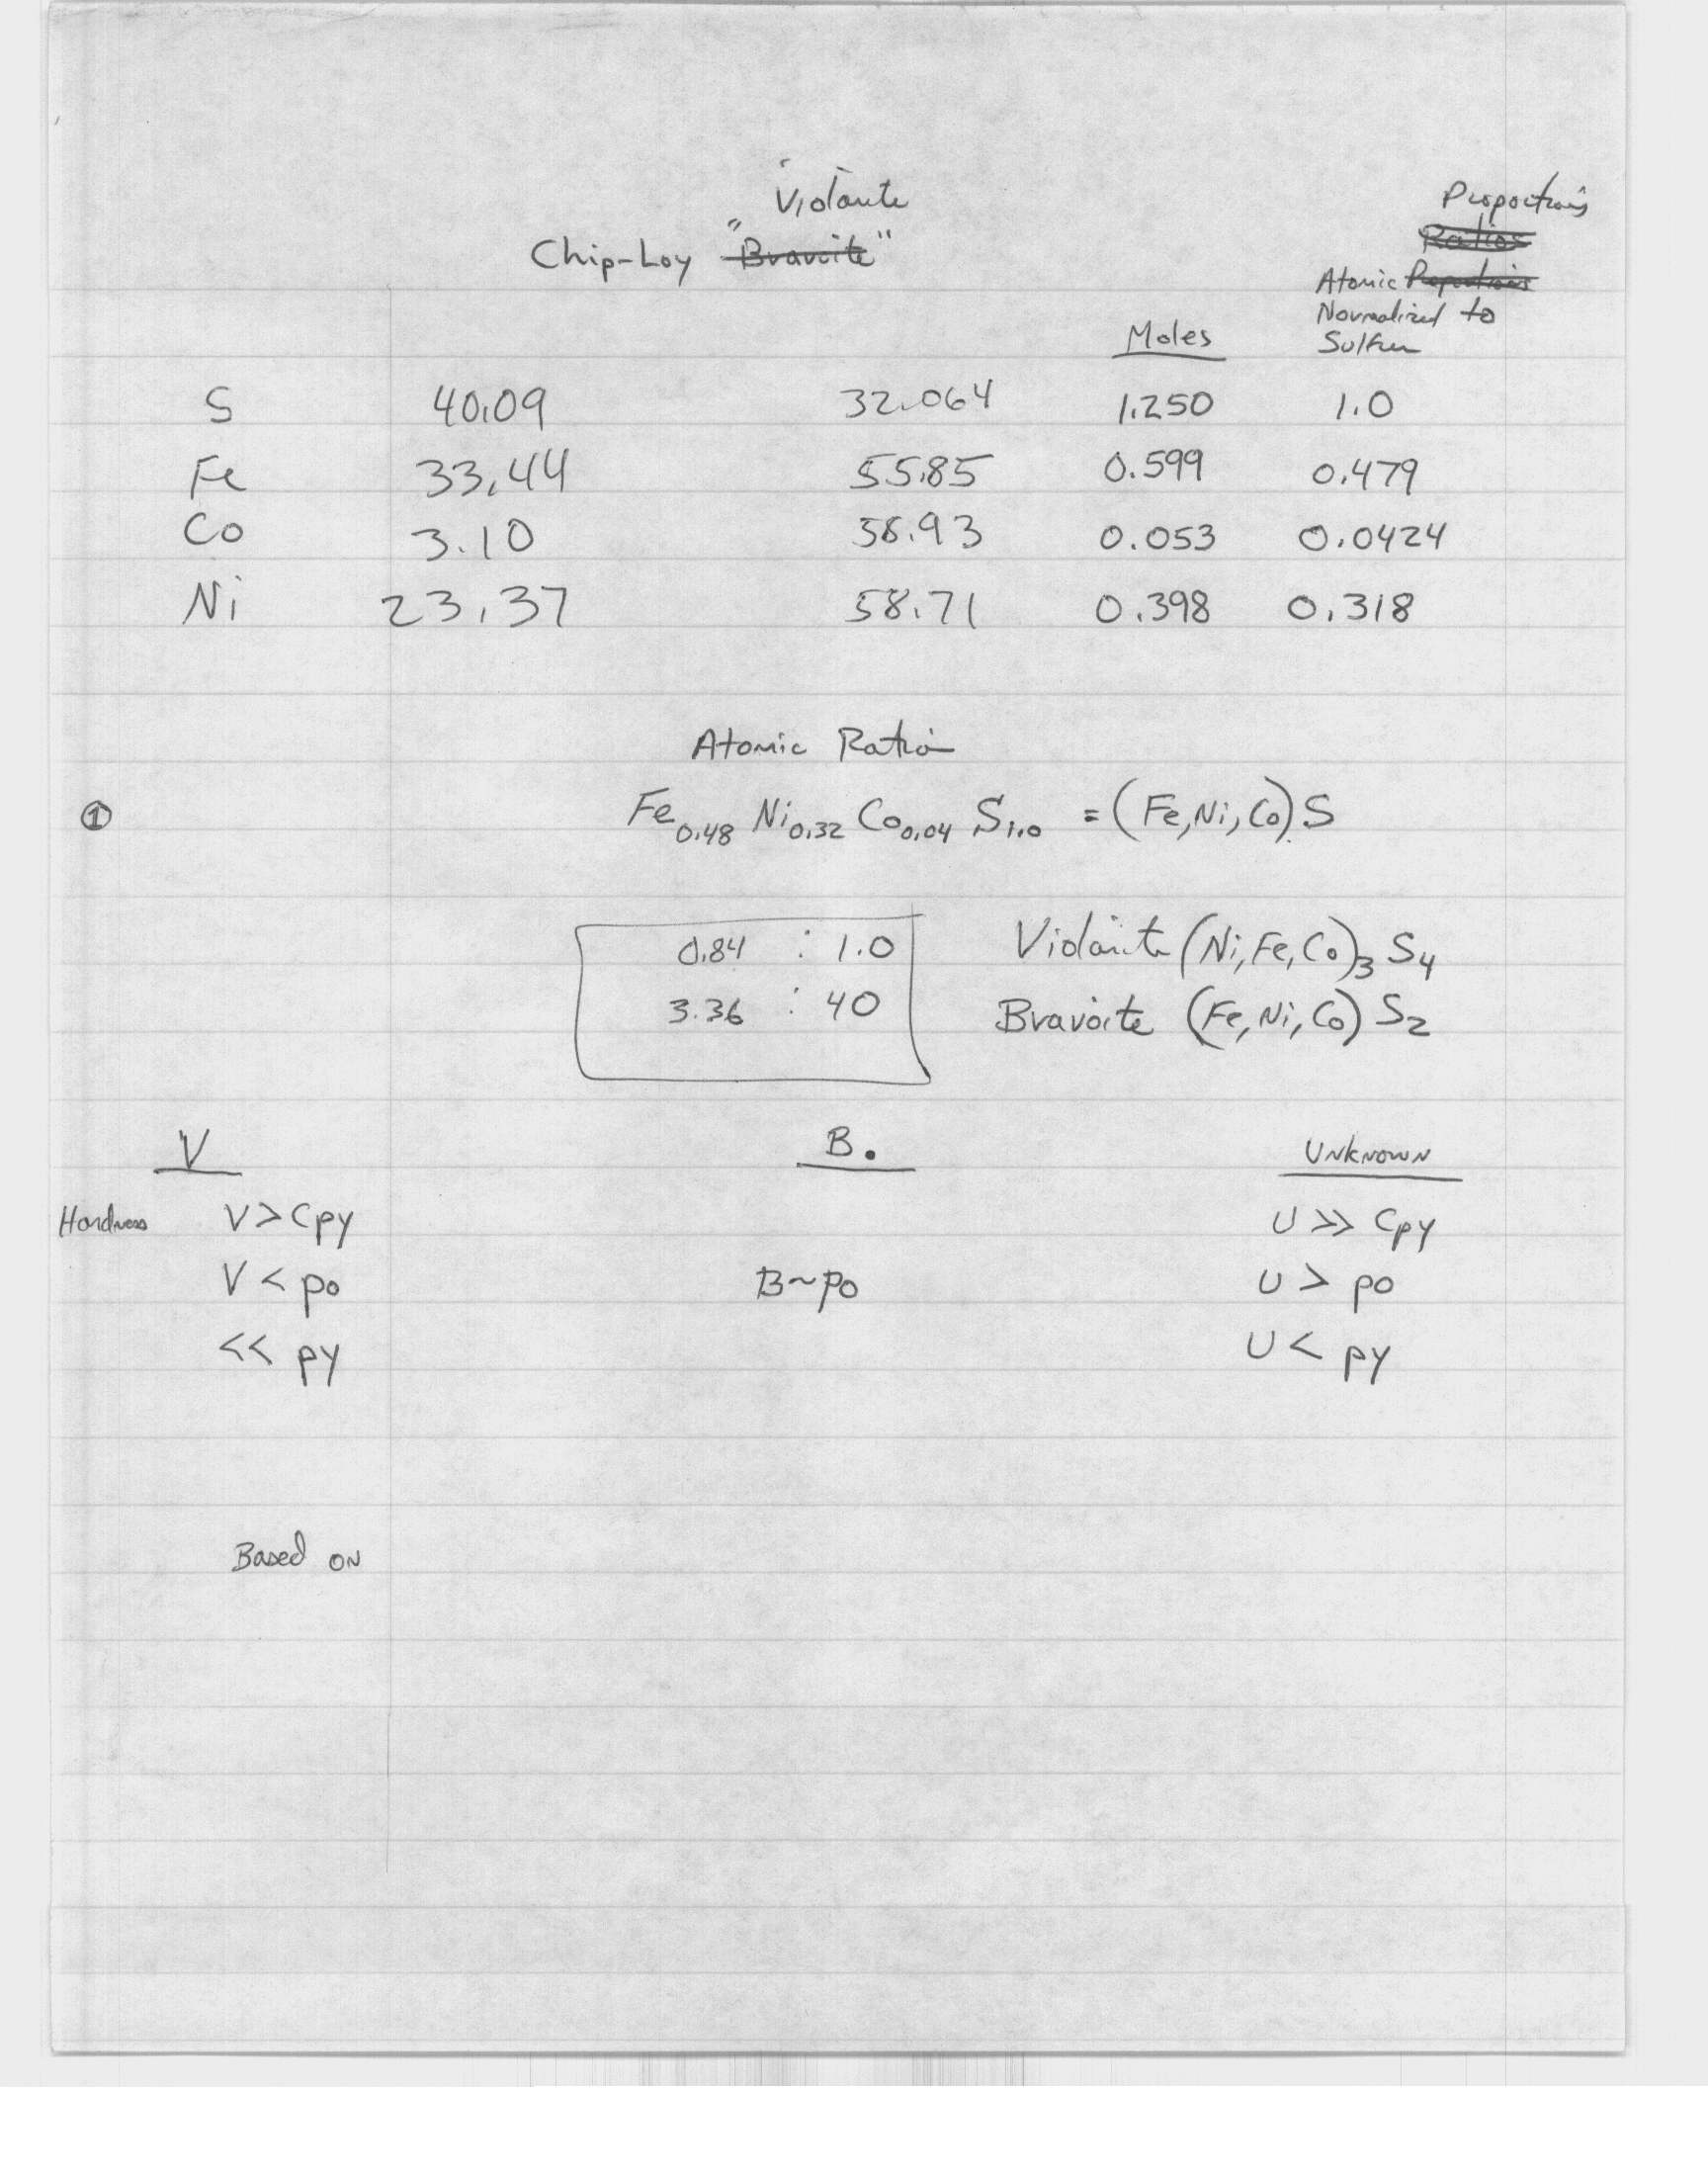 Violarite
Chip-Loy "Bravoite"
Proportions
Ratios
Atomic Proportions
Normalized to
Moles
Sulfur
S 40.09 32.064 1.250 1.0
Fe 33.44 55.85 0.599 0.479
Co 3.10 58.93 0.053 0.0424
Ni 23.37 58.71 0.398 0.318
Atomic Ratio
① Fe0.48 Ni0.32 Co0.04 S1.0 = (Fe,Ni,Co)S
0.84 : 1.0 Violarite (Ni,Fe,Co)3 S4
3.36 : 40 Bravoite (Fe,Ni,Co) S2
V B. UNKNOWN
Hardness V > Cpy U >> Cpy
V < po B~po U > po
<< py U < py
Based ON